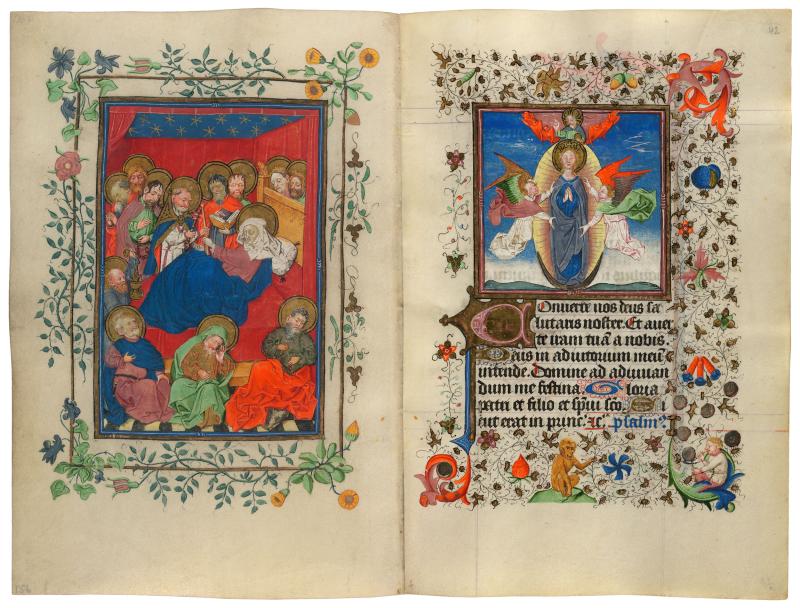 42
Onuerte nos deus sa
lutaris noster. Et auer
te iram tuā a nobis.
Deus in adiutorium meū
intende. Domine ad adiuuan
dum me festina. Gloria
patri et filio et spūi sco. Si
cut erat in princ. 7c. psalm9.
156